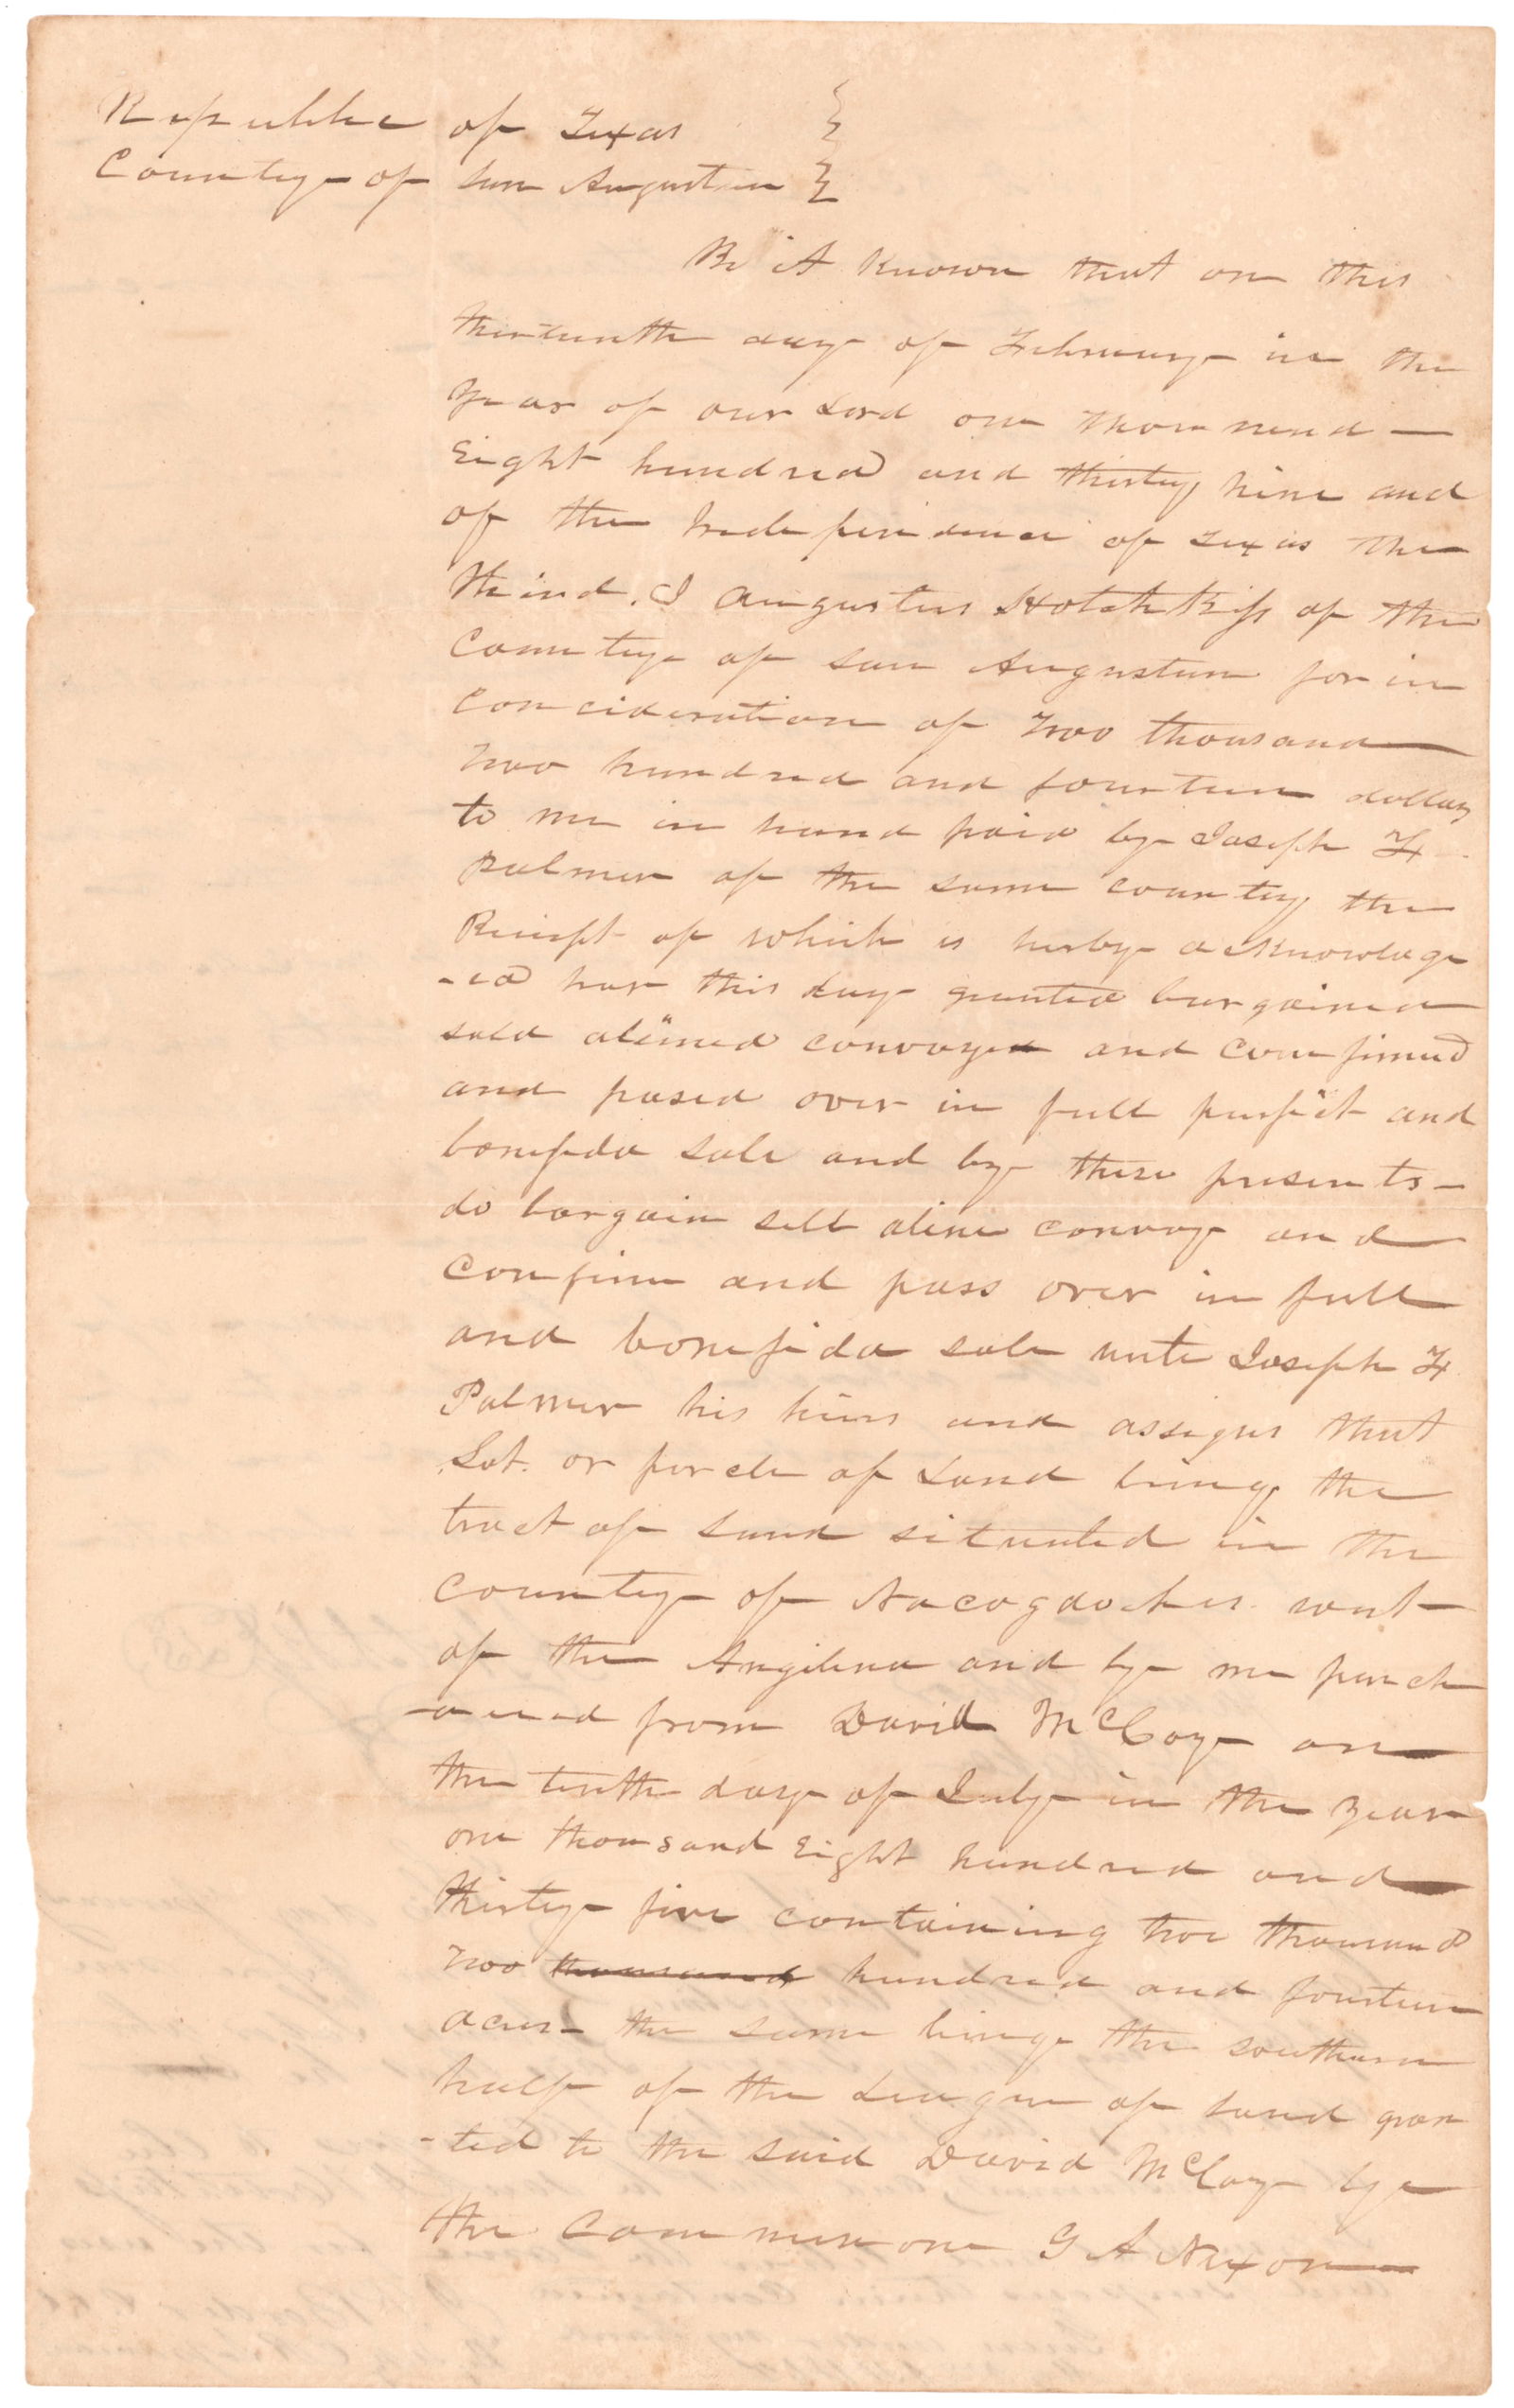 Republic of Texas
County of san Augustin
Be it Known that on this
thirteenth day of February in the
year of our Lord one thousand —
Eight hundred and thirty nine and
of the Independence of Texas the
third. I Augustus Hotchkiss of the
County of san Augustin for in
concideration of Two thousand
two hundred and fourteen dollars
to me in hand paid by Joseph F
Palmer of the same county the
Receipt of which is herby acknowledge
-ed hav this day granted bargained
sold aliened convayed and confirmed
and pased over in full perfict and
bonefida sale and by these presents —
do bargain sell aliene convay and
confirm and pass over in full
and bonefida sale unto Joseph F
Palmer his heirs and assigns that
Lot. or percle of Land being the
tract of Land situated in the
County of Nacogdoches west
of the Angelina and by me purch
-ased from David McCoy on
the tenth day of July in the year
one thousand Eight hundred and
thirty five containing two thousand
two thousand hundred and fourteen
acres the same being the southern
half of the League of Land gran
-ted to the said David McCoy by
the G A Nixon